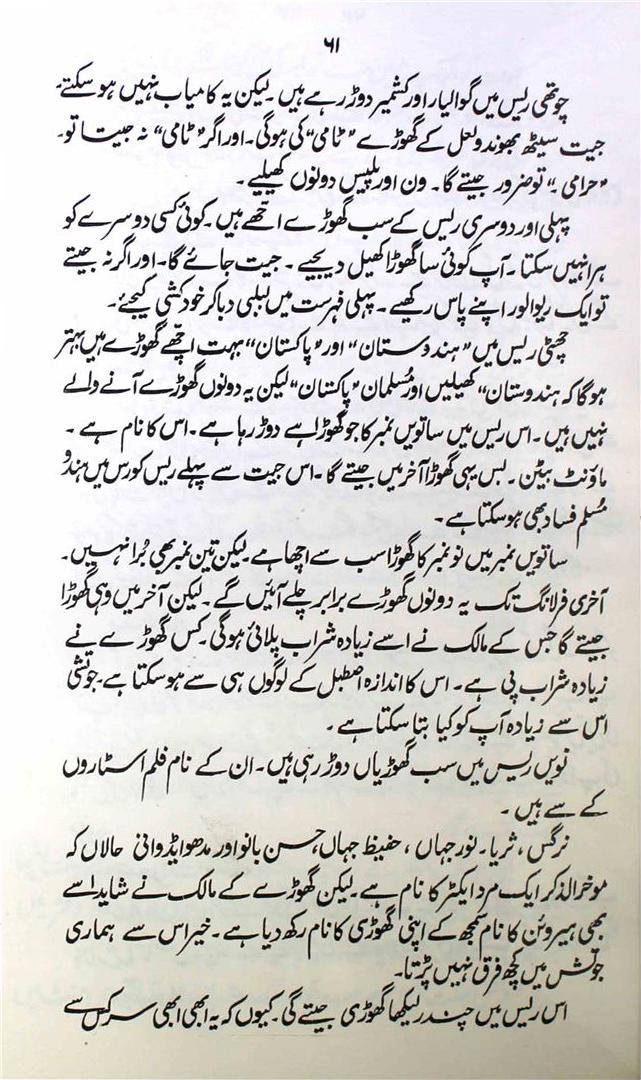 ۶۱
چوتھی ریس میں گوالیار اور کشمیر دوڑ رہے ہیں۔ لیکن یہ کامیاب نہیں ہو سکتے۔
جیت سیٹھ بھوندو لعل کے گھوڑے "ٹامی" کی ہوگی۔ اور اگر "ٹامی" نہ جیتا تو۔
"حرامی"۔ تو ضرور جیتے گا۔ ون اور پلیس دونوں کھیلیے۔
پہلی اور دوسری ریس کے سب گھوڑے اچھے ہیں۔ کوئی کسی دوسرے کو
ہرا نہیں سکتا۔ آپ کوئی سا گھوڑا کھیل دیجیے۔ جیت جائے گا۔ اور اگر نہ جیتے
تو ایک ریوالور اپنے پاس رکھیے۔ پہلی فہرست میں لبلبی دبا کر خودکشی کیجئے۔
چھٹی ریس میں "ہندوستان" اور "پاکستان" بہت اچھے گھوڑے ہیں بہتر
ہوگا کہ ہندوستان" کھیلیں اور مُسلمان "پاکستان" لیکن یہ دونوں گھوڑے آنے والے
نہیں ہیں۔ اس ریس میں ساتویں نمبر کا جو گھوڑا ہے دوڑ رہا ہے۔ اس کا نام ہے۔
ماؤنٹ بیٹن۔ بس یہی گھوڑا آخر میں جیتے گا۔ اس جیت سے پہلے ریس کورس میں ہندو
مُسلم فساد بھی ہو سکتا ہے۔
ساتویں نمبر میں نو نمبر کا گھوڑا سب سے اچھا ہے۔ لیکن تین نمبر بھی بُرا نہیں۔
آخری فرلانگ تک یہ دونوں گھوڑے برابر چلے آئیں گے۔ لیکن آخر میں وہی گھوڑا
جیتے گا جس کے مالک نے اسے زیادہ شراب پلائی ہوگی۔ کس گھوڑے نے
زیادہ شراب پی ہے۔ اس کا اندازہ اصطبل کے لوگوں ہی سے ہو سکتا ہے۔ جوتشی
اس سے زیادہ آپ کو کیا بتا سکتا ہے۔
نویں ریس میں سب گھوڑیاں دوڑ رہی ہیں۔ ان کے نام فلم اسٹاروں
کے سے ہیں۔
نرگس، ثریا۔ نور جہاں، حفیظ جہاں، حسن بانو اور مدھو ایڈوانی حالاں کہ
موخرالذکر ایک مرد ایکٹر کا نام ہے۔ لیکن گھوڑے کے مالک نے شاید اسے
بھی ہیروئن کا نام سمجھ کے اپنی گھوڑی کا نام رکھ دیا ہے۔ خیر اس سے ہماری
جوتش میں کچھ فرق نہیں پڑتا۔
اس ریس میں چندر لیکھا گھوڑی جیتے گی۔ کیوں کہ یہ ابھی ابھی سرکس سے